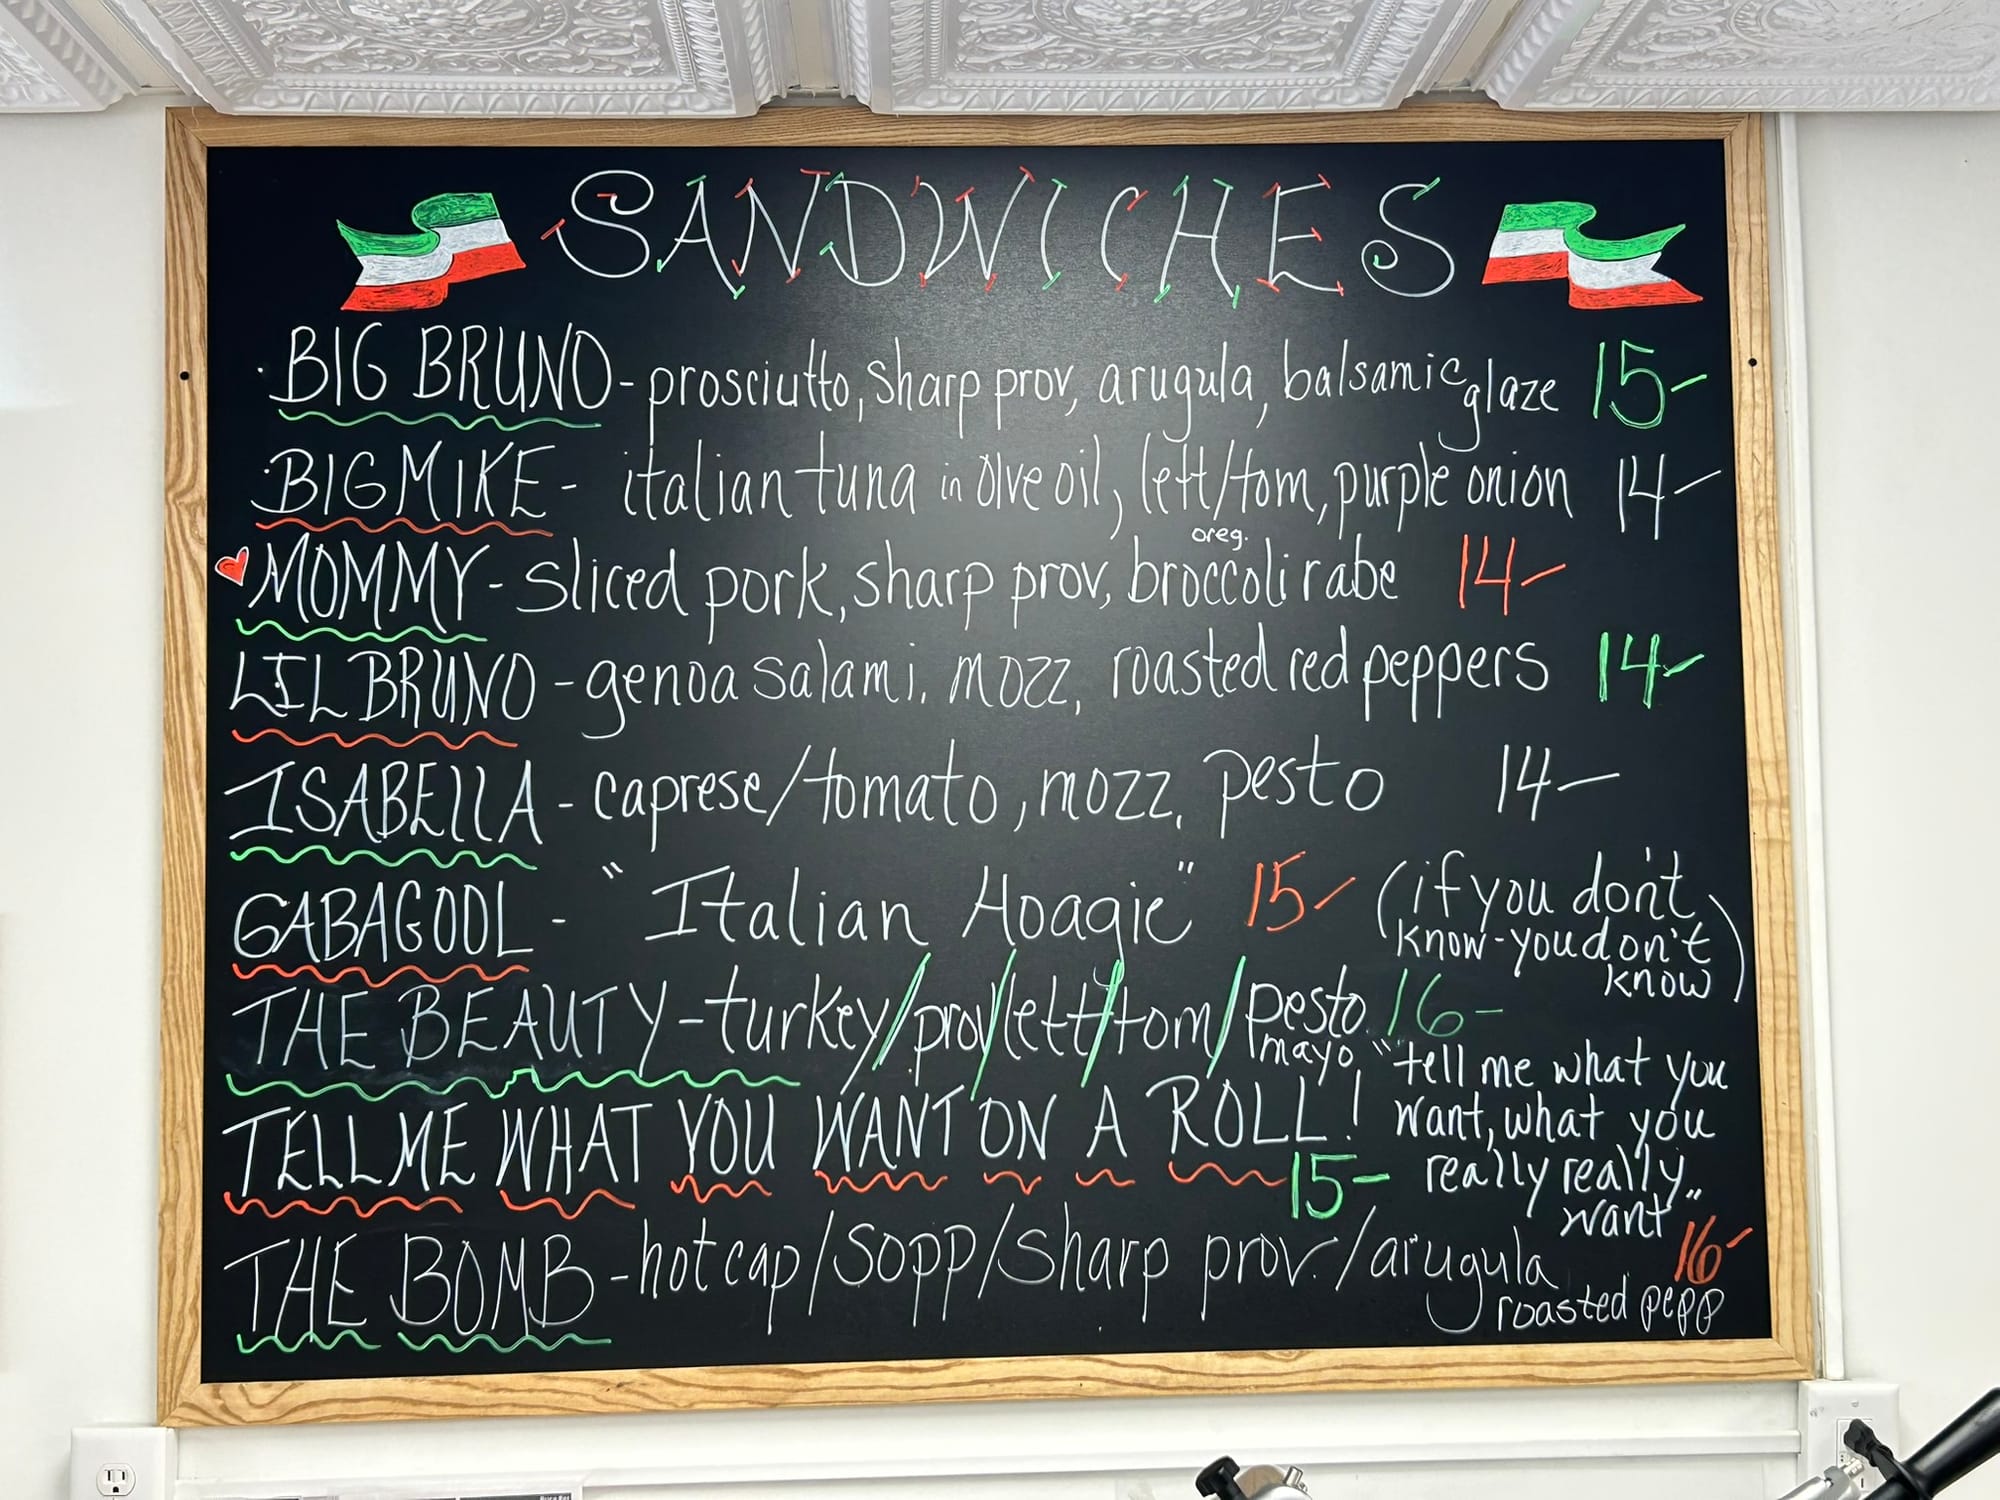 SANDWICHES
BIG BRUNO - prosciutto, sharp prov, arugula, balsamic glaze 15-
BIG MIKE - italian tuna in olve oil, lett/tom, purple onion 14-
oreg.
MOMMY - sliced pork, sharp prov, broccoli rabe 14-
LIL BRUNO - genoa salami, mozz, roasted red peppers 14-
ISABELLA - caprese/tomato, mozz, pesto 14-
GABAGOOL - "Italian Hoagie" 15- (if you don't
know - you don't
know)
THE BEAUTY - turkey/prov/lett/tom/pesto 16-
mayo
TELL ME WHAT YOU WANT ON A ROLL! 15-
"tell me what you
want, what you
really really
want"
THE BOMB - hot cap/sopp/sharp prov./arugula 16-
roasted pepp